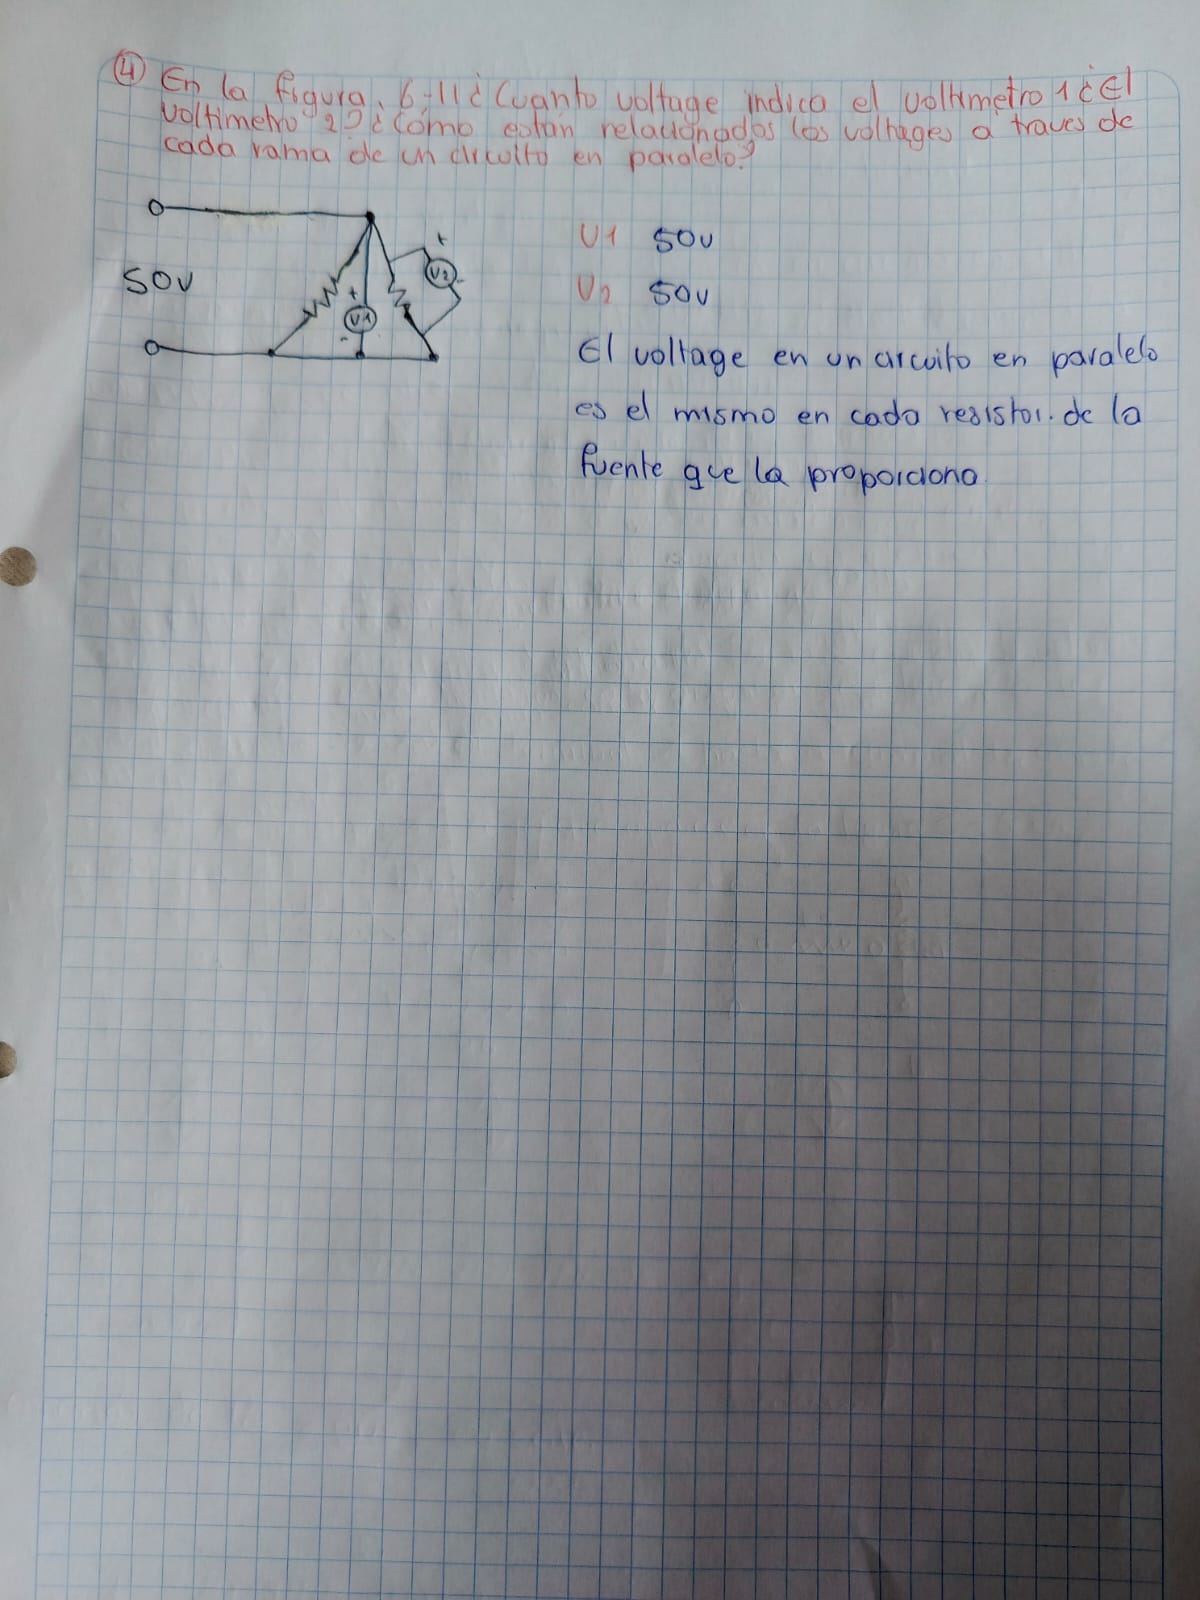 4 En la figura. 6-11 ¿ Cuanto voltage indica el voltimetro 1 ¿ El
voltimetro 2? ¿ Cómo están relacionados los voltages a traves de
cada rama de un circuito en paralelo?
50V
+
V1
-
+
V2
-
V1 50v
V2 50v
El voltage en un circuito en paralelo
es el mismo en cada resistor. de la
fuente que la proporciona